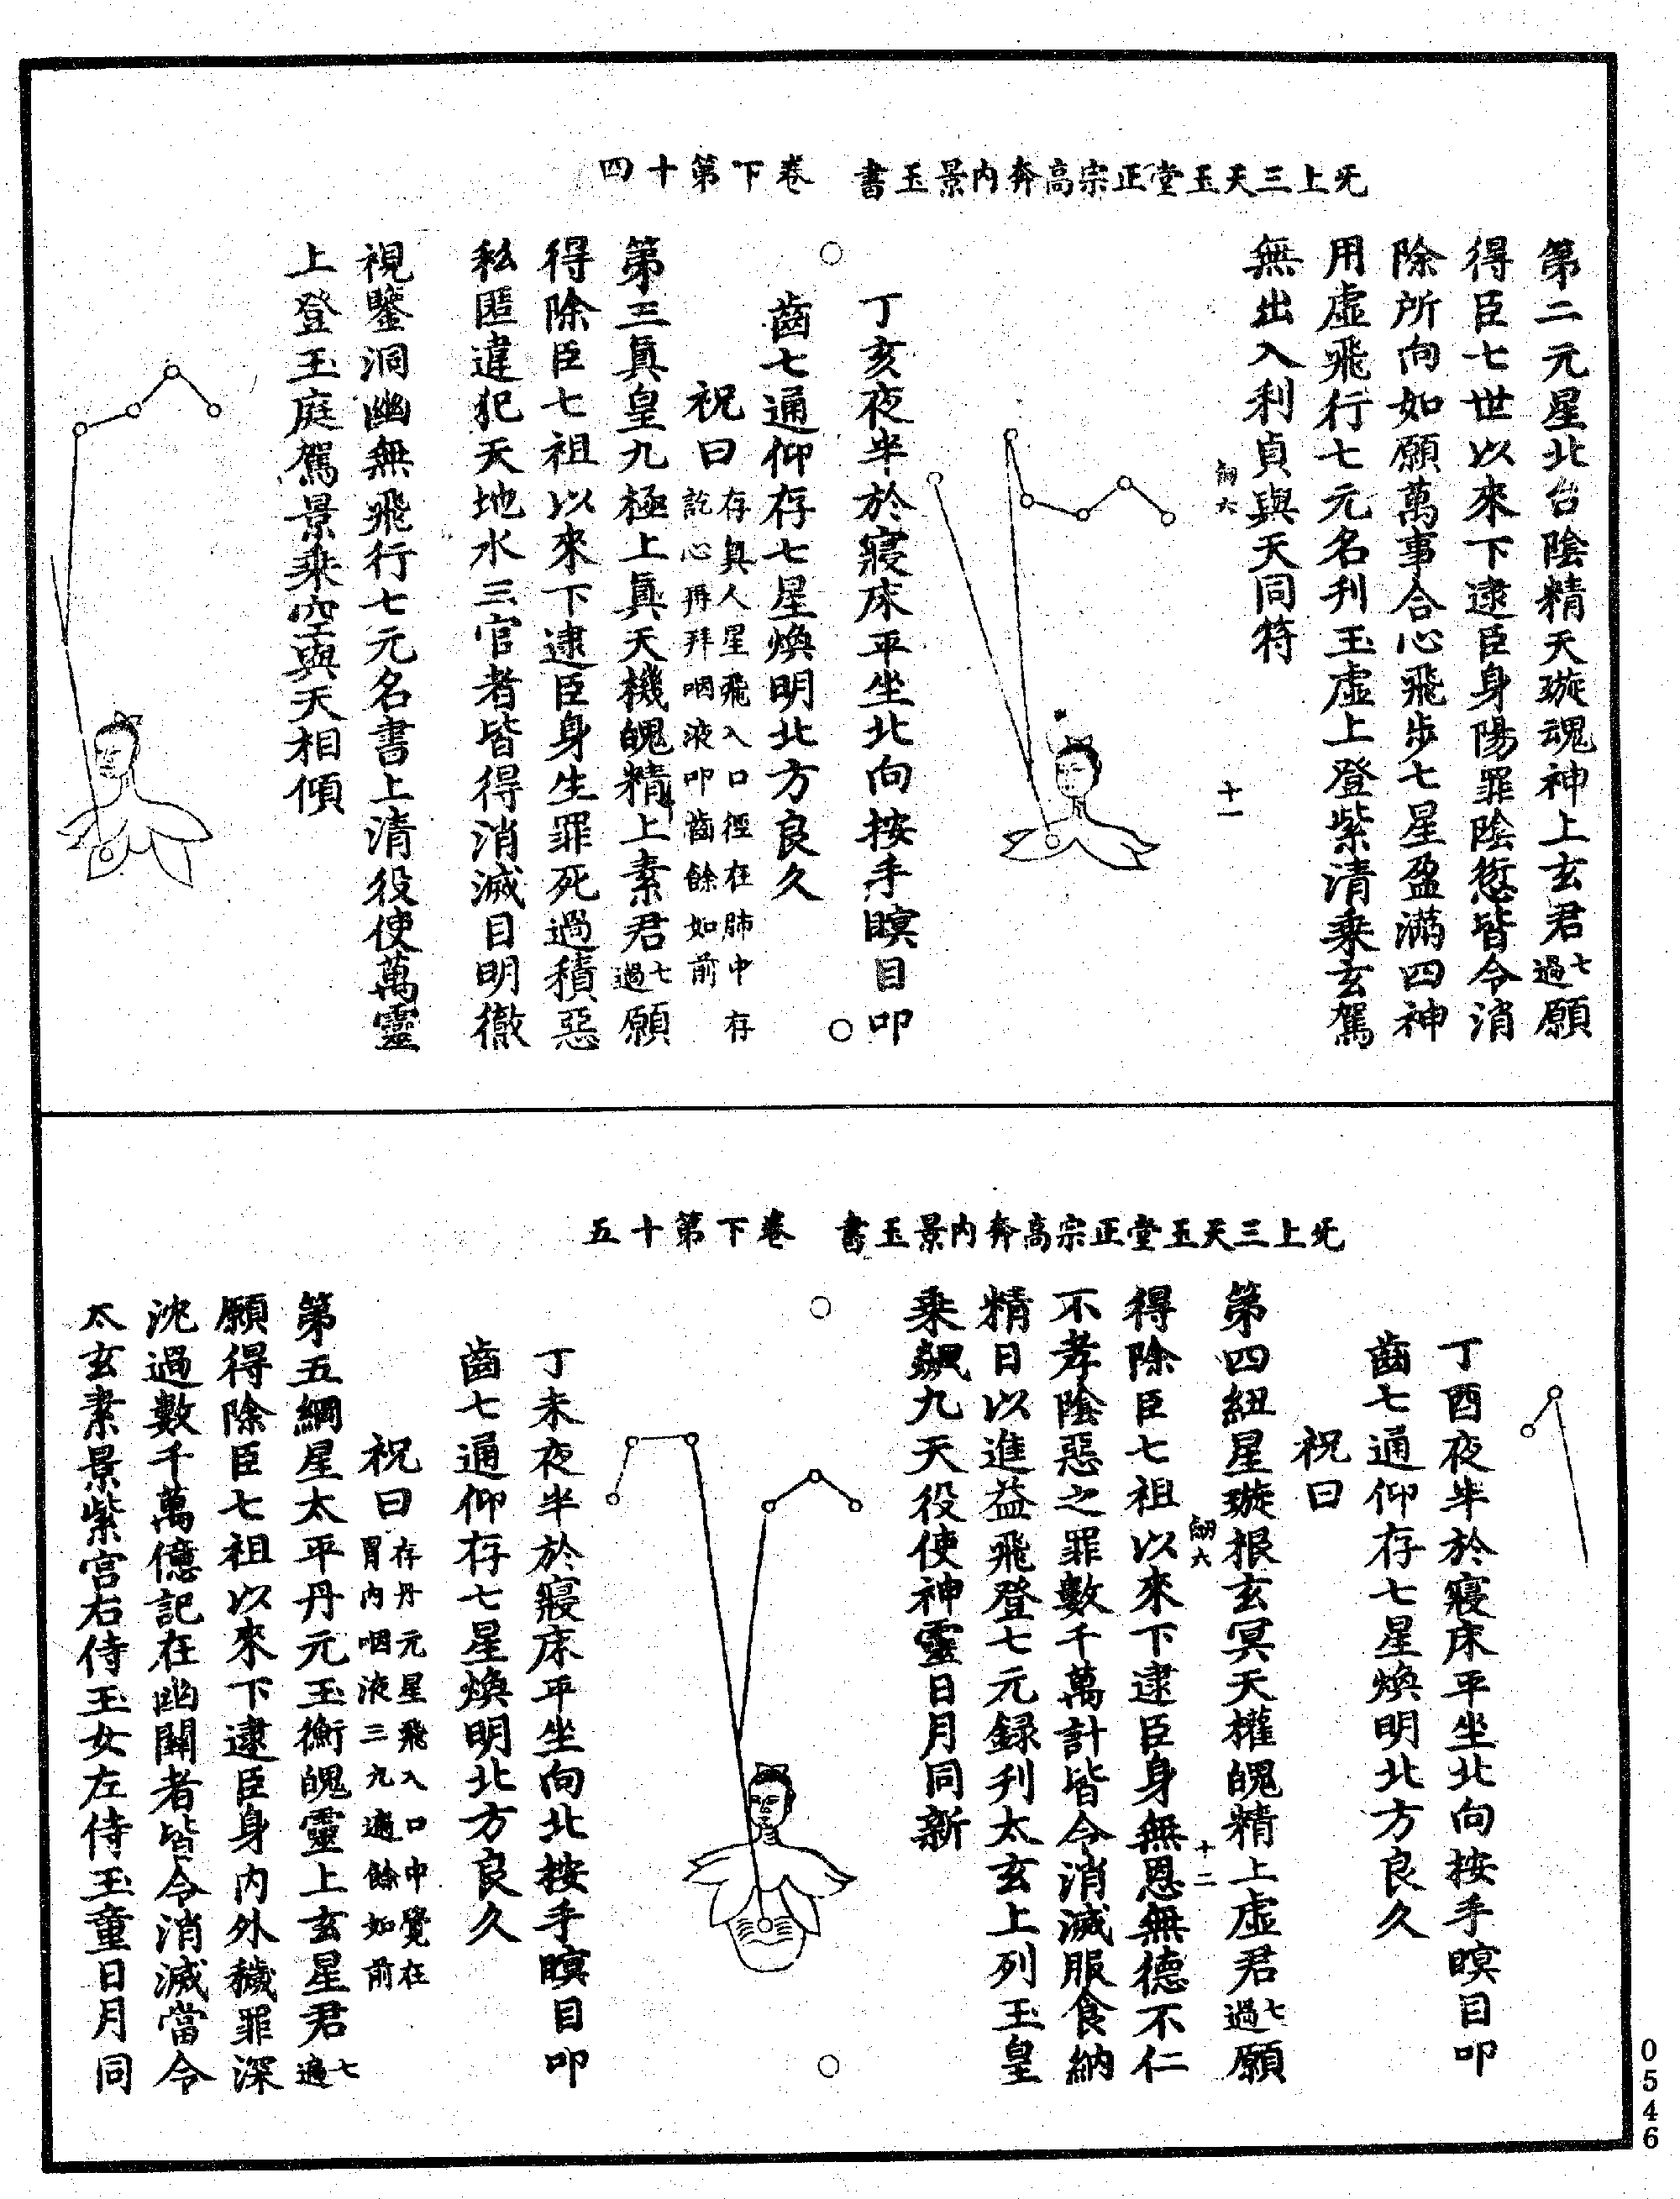 旡上三天玉堂正宗高奔內景玉書　卷下第十四
第二元星北台陰精天璇魂神上玄君七過願
得臣七世以來下逮臣身陽罪陰愆皆令消
除所向如願萬事合心飛步七星盈滿四神
用虛飛行七元名刋玉虛上登紫清乘玄駕
無出入利貞與天同符
六　十一
丁亥夜半於寢床平坐北向按手瞑目叩
齒七通仰存七星煥明北方良久
祝曰存真人星飛入口徑在肺中存
訖心再拜咽液叩齒餘如前
第三真皇九極上真天機魄精上素君七過願
得除臣七祖以來下逮臣身生罪死過積惡
私匿違犯天地水三官者皆得消滅目明徹
視鑒洞幽無飛行七元名書上清役使萬靈
上登玉庭駕景乘空與天相傾
旡上三天玉堂正宗高奔內景玉書　卷下第十五
丁酉夜半於寢床平坐北向按手瞑目叩
齒七通仰存七星煥明北方良久
祝曰
第四紐星璇根玄冥天權魄精上虛君七過願
六　十二
得除臣七祖以來下逮臣身無恩無德不仁
不孝陰惡之罪數千萬計皆令消滅服食納
精日以進益飛登七元録刋太玄上列玉皇
乘飆九天役使神靈日月同新
丁未夜半於寢床平坐向北按手瞑目叩
齒七通仰存七星煥明北方良久
祝曰存丹元星飛入口中覺在
胃內咽液三九遍餘如前
第五綱星太平丹元玉衡魄靈上玄星君七遍
願得除臣七祖以來下逮臣身內外穢罪深
沈過數千萬億記在幽關者皆令消滅當令
太玄素景紫宮右侍玉女左侍玉童日月同
0546